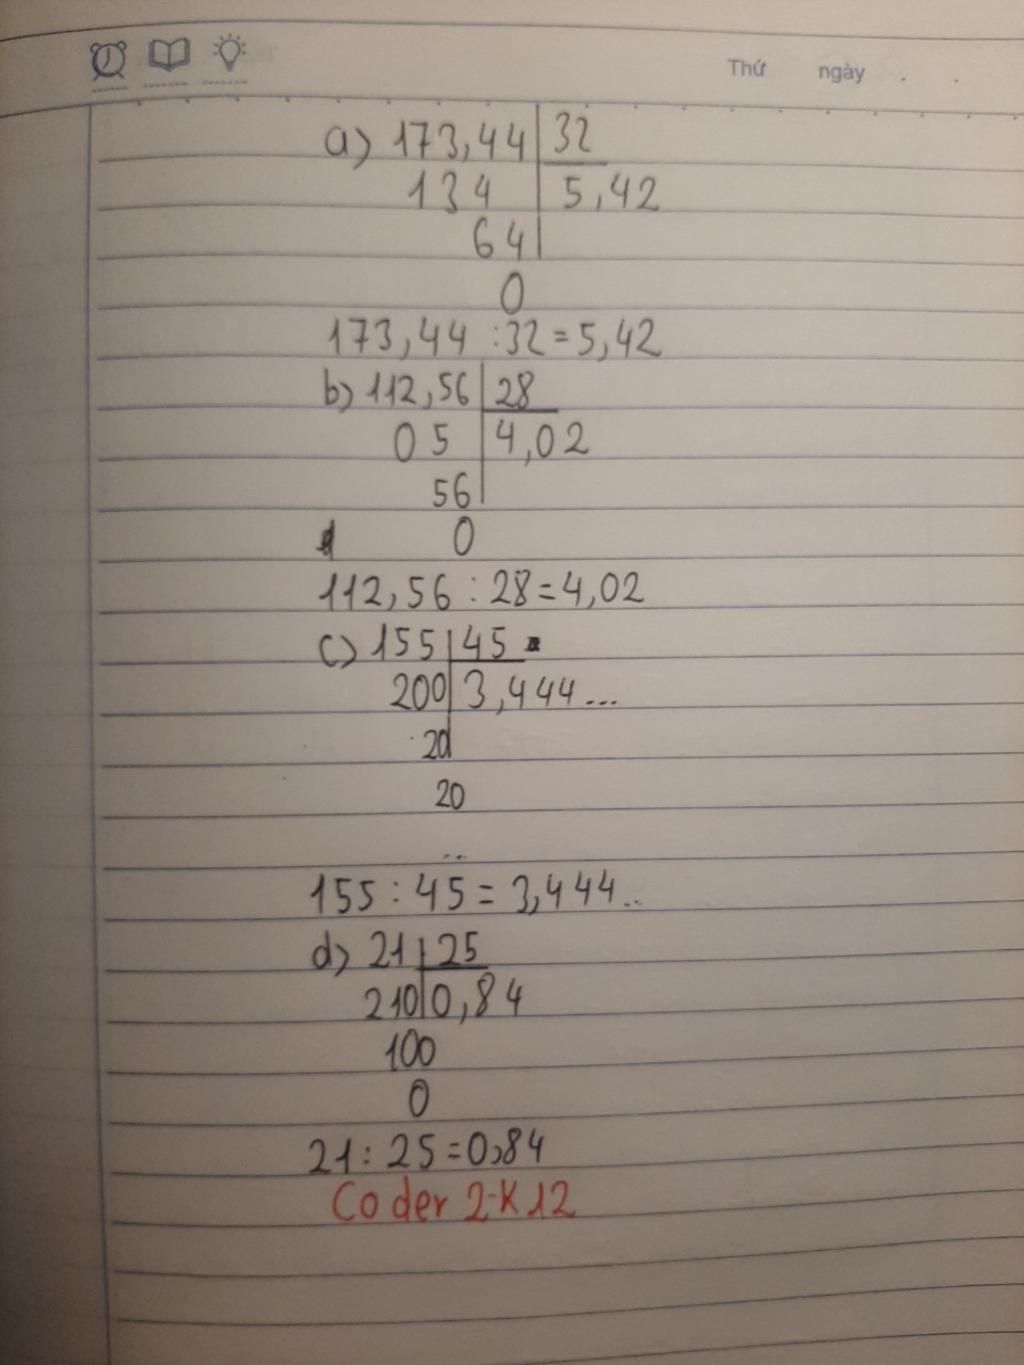 Thứ ngày . .
a) 173,44 | 32
134 | 5,42
64
0
173,44 : 32 = 5,42
b) 112,56 | 28
05 | 4,02
56
0
112,56 : 28 = 4,02
c) 155 | 45
200 | 3,444...
20
20
..
155 : 45 = 3,444..
d) 21 | 25
210 | 0,84
100
0
21 : 25 = 0,84
Coder 2-K12